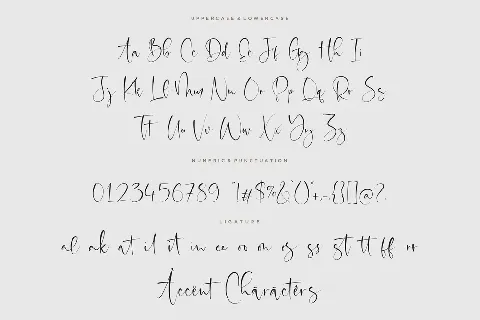 UPPERCASE & LOWERCASE
Aa Bb Cc Dd Ee Ff Gg Hh Ii
Jj Kk Ll Mm Nn Oo Pp Qq Rr Ss
Tt Uu Vv Ww Xx Yy Zz
NUMERICS PUNCTUATION
0123456789 "!#$%&'()*+,-{}[]@?.
LIGATURE
al ak at, il it in ee oo on es ss st tt ff rr
Accent Characters